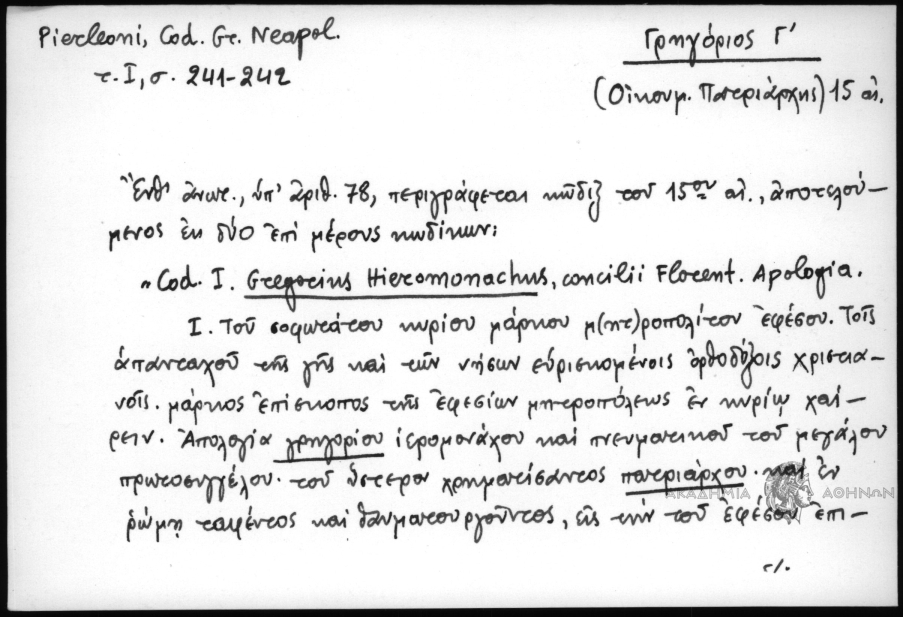 Pierleoni, Cod. Gr. Neapol.
τ. I, σ. 241-242
Γρηγόριος Γ'
(Οἰκουμ. Πατριάρχης) 15 αἰ.
"Ἔνθ' ἀνωτ., ὑπ' ἀριθ. 78, περιγράφεται κῶδιξ τοῦ 15ου αἰ., ἀποτελού-
μενος ἐκ δύο ἐπὶ μέρους κωδίκων:
"Cod. I. Gregorius Hieromonachus, concilii Florent. Apologia.
I. Τοῦ σοφωτάτου κυρίου μάρκου μ(ητ)ροπολίτου ἐφέσου. Τοῖς
ἁπανταχοῦ τῆς γῆς καὶ τῶν νήσων εὑρισκομένοις ὀρθοδόξοις χριστια-
νοῖς. μάρκος ἐπίσκοπος τῆς ἐφεσίων μητροπόλεως ἐν κυρίῳ χαί-
ρειν. Ἀπολογία γρηγορίου ἱερομονάχου καὶ πνευματικοῦ τοῦ μεγάλου
πρωτοσυγγέλου. τοῦ ὕστερον χρηματίσαντος πατριάρχου. καὶ ἐν
ῥώμῃ ταφέντος καὶ θαυματουργοῦντος, εἰς τὴν τοῦ ἐφέσου ἐπι-
τ/.
ΑΚΑΔΗΜΙΑ ΑΘΗΝΩΝ